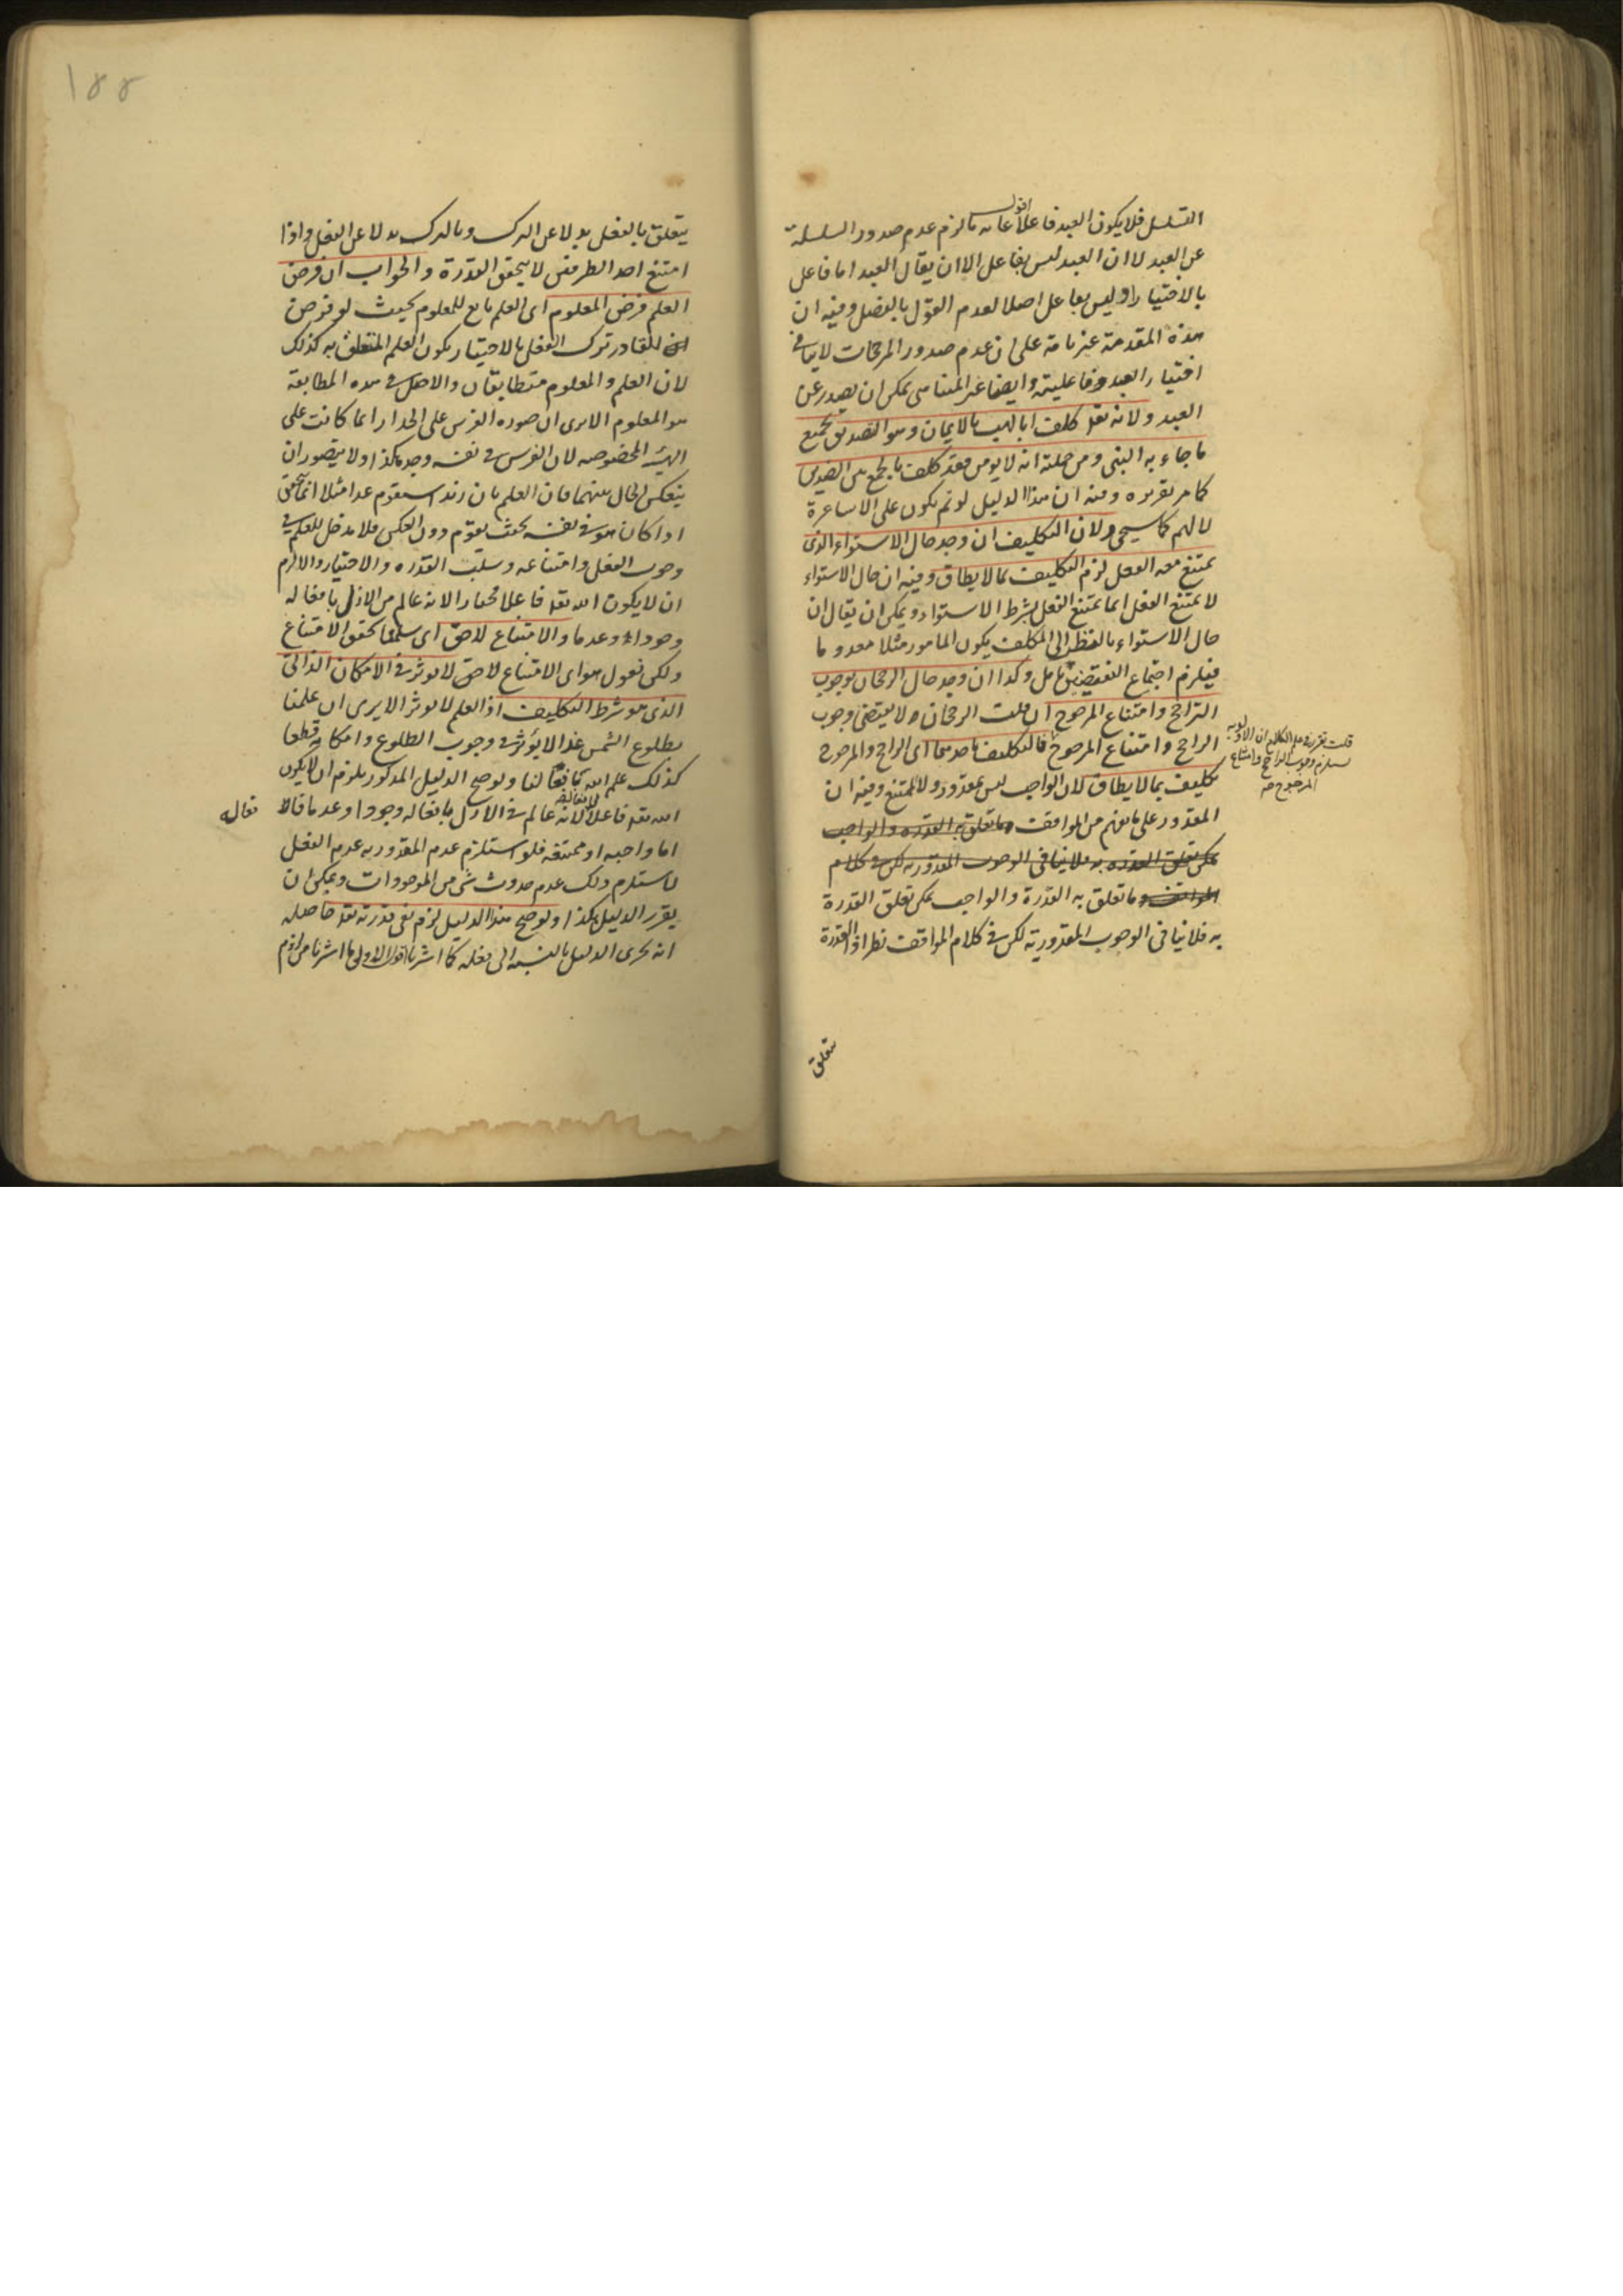 التسلسل فلا يكون العبد فاعلا اقول غاية ما لزم عدم صدور السلسلة
عن العبد لا ان العبد ليس بفاعل الا ان يقال العبد اما فاعل
بالاختيار او ليس بفاعل اصلا لعدم القول بالفصل وفيه ان
هذه المقدمة غير تامة على ان عدم صدور المرجحات لا ينافي
اختيار العبد وفاعليته وايضا غير المتناهي يمكن ان يصدر عن
العبد ولانه تعالى كلف ابا لهب بالايمان وهو التصديق بجميع
ما جاء به النبي ومن جملته انه لا يؤمن فقد كلف بالجمع بين الضدين
كما مر تقريره وفيه ان هذا الدليل لو تم يكون على الاشاعرة
لا لهم كما سيجئ ولان التكليف ان وجد حال الاستواء الذي
يمتنع معه الفعل لزم التكليف بما لا يطاق وفيه ان حال الاستواء
لا يمتنع الفعل انما يمتنع الفعل بشرط الاستواء ويمكن ان يقال ان
حال الاستواء بالنظر الى المكلف يكون المامور مثلا معدوما
فيلزم اجتماع النقيضين تامل وكذا ان وجد حال الرجحان لوجوب
الراجح وامتناع المرجوح ان قلت الرجحان لا يقتضي وجوب
الراجح وامتناع المرجوح فالتكليف باحدهما اي الراجح والمرجوح
قلت تقرر في علم الكلام ان الاولوية
يستلزم وجوب الراجح وامتناع
المرجوح منه
تكليف بما لا يطاق لان الواجب ليس بمقدور ولا الممتنع وفيه ان
المقدور على ما يفهم من المواقف ما تعلق به القدرة والواجب
يمكن تعلق القدرة به فلا ينافي الوجوب المقدورية لكن في كلام
المواقف وما تعلق به القدرة والواجب يمكن تعلق القدرة
به فلا ينافي الوجوب المقدورية لكن في كلام المواقف نظر اذ القدرة
تتعلق
١٥٥
يتعلق بالفعل بدلا عن الترك وبالترك بدلا عن الفعل واذا
امتنع احد الطرفين لا يتحقق القدرة والجواب ان فرض
العلم فرض المعلوم اي العلم تابع للمعلوم بحيث لو فرض
للقادر ترك الفعل بالاختيار يكون العلم المتعلق به كذلك
لان العلم والمعلوم متطابقان والاصل في هذه المطابقة
هو المعلوم الا يرى ان صورة الفرس على الجدار انما كانت على
الهيئة المخصوصة لان الفرس في نفسه وجد هكذا ولا يتصور ان
ينعكس الحال بينهما فان العلم بان زيدا سيقوم غدا مثلا انما يتحقق
اذا كان هو في نفسه بحيث يقوم دون العكس فلا مدخل للعلم في
وجوب الفعل وامتناعه وسلب القدرة والاختيار والا لزم
ان لا يكون الله تعالى فاعلا مختارا لانه عالم من الازل بافعاله
وجودا وعدما والامتناع لاحق اي سلمنا تحقق الامتناع
ولكن نقول هو اي الامتناع لاحق لا يؤثر في الامكان الذاتي
الذي هو شرط التكليف اذ العلم لا يؤثر الا يرى ان علمنا
بطلوع الشمس غدا لا يؤثر في وجوب الطلوع وامكانه قطعا
كذلك علم الله بافعالنا ولو صح الدليل المذكور يلزم ان لا يكون
الله تعالى فاعلا لافعاله لانه عالم في الازل بافعاله وجودا وعدما
فعاله
اما واجبة او ممتنعة فلو استلزم عدم المقدورية عدم الفعل
لاستلزم ذلك عدم حدوث شئ من الموجودات ويمكن ان
يقرر الدليل هكذا ولو صح هذا الدليل لزم نفي قدرته تعالى حاصله
انه يجري الدليل بالنسبة الى فعله كما اشرنا اقول الاولى ما اشرنا من لزوم